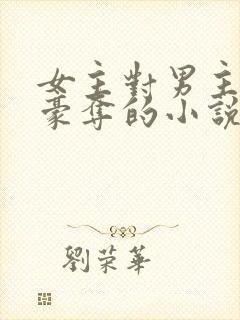 女主對男主
豪奪的小說
劉榮華